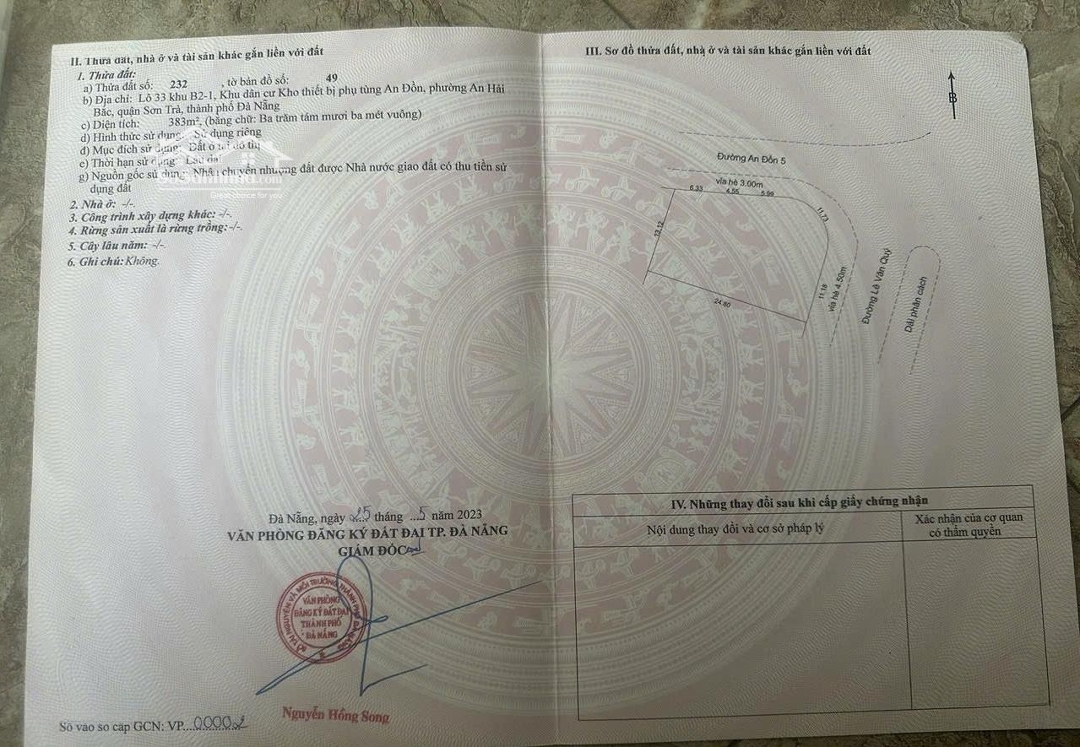 II. Thửa đất, nhà ở và tài sản khác gắn liền với đất
1. Thửa đất:
a) Thửa đất số: 232 , tờ bản đồ số: 49
b) Địa chỉ: Lô 33 khu B2-1, Khu dân cư Kho thiết bị phụ tùng An Đồn, phường An Hải
Bắc, quận Sơn Trà, thành phố Đà Nẵng
c) Diện tích: 383m², (bằng chữ: Ba trăm tám mươi ba mét vuông)
d) Hình thức sử dụng: Sử dụng riêng
đ) Mục đích sử dụng: Đất ở tại đô thị
e) Thời hạn sử dụng: Lâu dài
g) Nguồn gốc sử dụng: Nhận chuyển nhượng đất được Nhà nước giao đất có thu tiền sử
dụng đất
2. Nhà ở: -/-.
3. Công trình xây dựng khác: -/-.
4. Rừng sản xuất là rừng trồng: -/-.
5. Cây lâu năm: -/-.
6. Ghi chú: Không.
Đà Nẵng, ngày 25 tháng 5 năm 2023
VĂN PHÒNG ĐĂNG KÝ ĐẤT ĐAI TP. ĐÀ NẴNG
GIÁM ĐỐC
VĂN PHÒNG
ĐĂNG KÝ ĐẤT ĐAI
THÀNH PHỐ
ĐÀ NẴNG
Nguyễn Hồng Song
Số vào sổ cấp GCN: VP...
III. Sơ đồ thửa đất, nhà ở và tài sản khác gắn liền với đất
B
Đường An Đồn 5
vỉa hè 3.00m
6.33 4.55 5.99
11.73
13.12
11.18
vỉa hè 4.50m
24.60
Đường Lê Văn Quý
Dải phân cách
IV. Những thay đổi sau khi cấp giấy chứng nhận
Nội dung thay đổi và cơ sở pháp lý
Xác nhận của cơ quan
có thẩm quyền